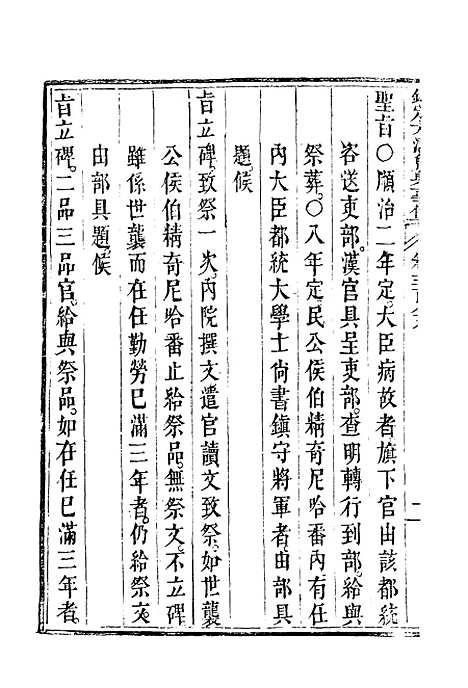 聖旨○順治二年定大臣病故者旗下官由該都統
咨送吏部漢官具呈吏部查明轉行到部給與
祭葬○八年定民公侯伯精奇尼哈番內有任
內大臣都統大學士尚書鎮守將軍者由部具
題候
旨立碑致祭一次內院撰文遣官讀文致祭如世襲
公侯伯精奇尼哈番止給祭品無祭文不立碑
雖係世襲而在任勤勞已滿三年者仍給祭文
由部具題候
旨立碑二品三品官給與祭品如在任已滿三年者